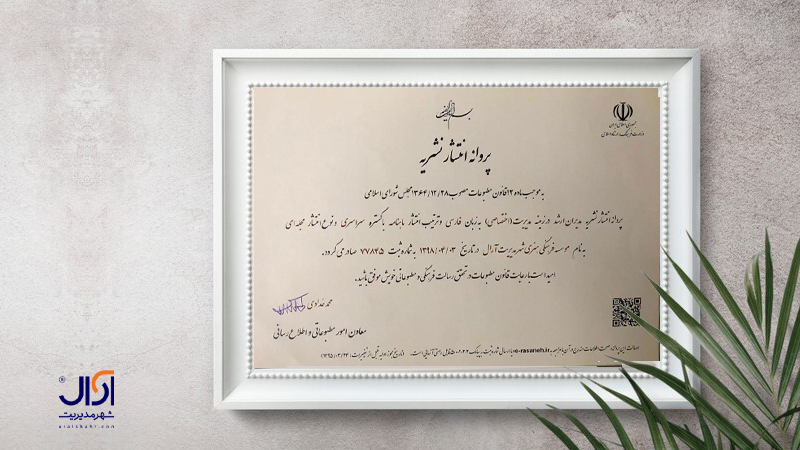 جمهوری اسلامی ایران
وزارت فرهنگ و ارشاد اسلامی
پروانه انتشار نشریه
به موجب ماده ۱۳ قانون مطبوعات مصوب ۱۳۶۴/۱۲/۲۸ مجلس شورای اسلامی
پروانه انتشار نشریه مدیران ارشد در زمینه مدیریت (اختصاصی) به زبان فارسی و ترتیب انتشار ماهنامه با گستره سراسری و نوع انتشار مجله‌ای
به نام موسسه فرهنگی هنری شهر مدیریت آرال در تاریخ ۱۳۹۸/۰۴/۰۳ به شماره ثبت ۷۷۸۴۵ صادر می گردد.
امید است با رعایت قانون مطبوعات در تحقق رسالت فرهنگی و مطبوعاتی خویش موفق باشید.
محمد خدادی
معاون امور مطبوعاتی و اطلاع رسانی
e-rasaneh.ir
آرال
®
شهر مدیریت
aralshahr.com